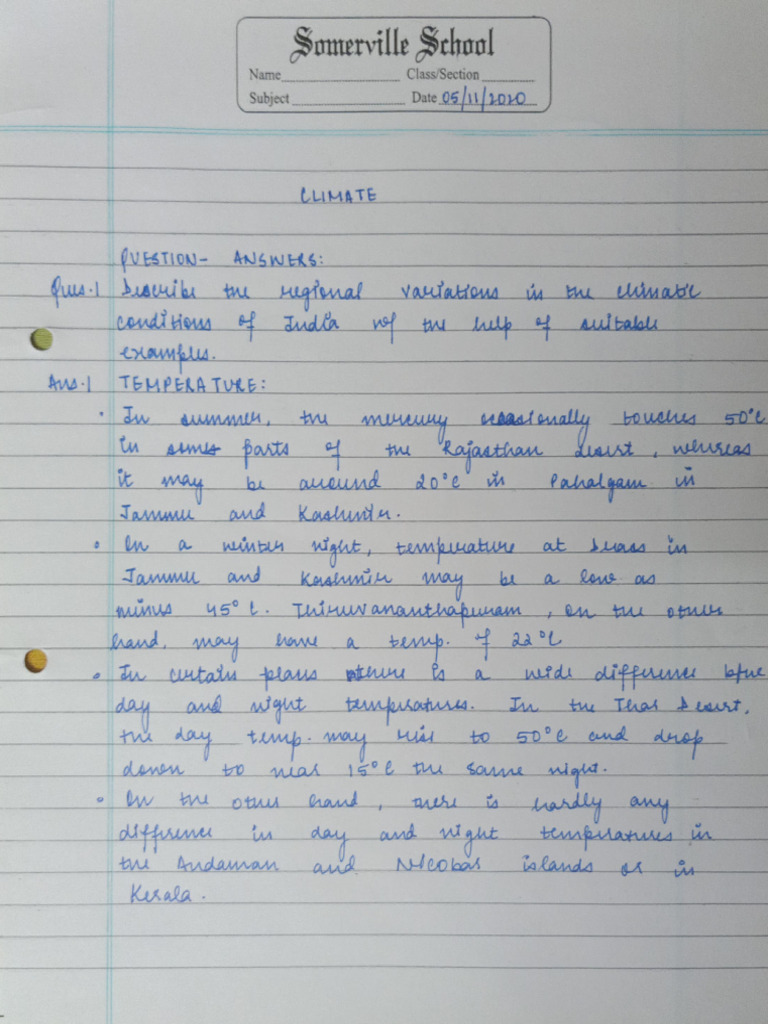 Somerville School
Name Class/Section
Subject Date 05/11/2020
CLIMATE
QUESTION- ANSWERS:
Ques.1 Describe the regional variations in the climatic
conditions of India w/ the help of suitable
examples.
Ans.1 TEMPERATURE:
• In summer, the mercury occasionally touches 50°C
in some parts of the Rajasthan desert, whereas
it may be around 20°C in Pahalgam in
Jammu and Kashmir.
• On a winter night, temperature at Drass in
Jammu and Kashmir may be a low as
minus 45°C. Thiruvananthapuram, on the other
hand, may have a temp. of 22°C
• In certain places there is a wide difference b/w
day and night temperatures. In the Thar Desert,
the day temp. may rise to 50°C and drop
down to near 15°C the same night.
• On the other hand, there is hardly any
difference in day and night temperatures in
the Andaman and Nicobar islands or in
Kerala.